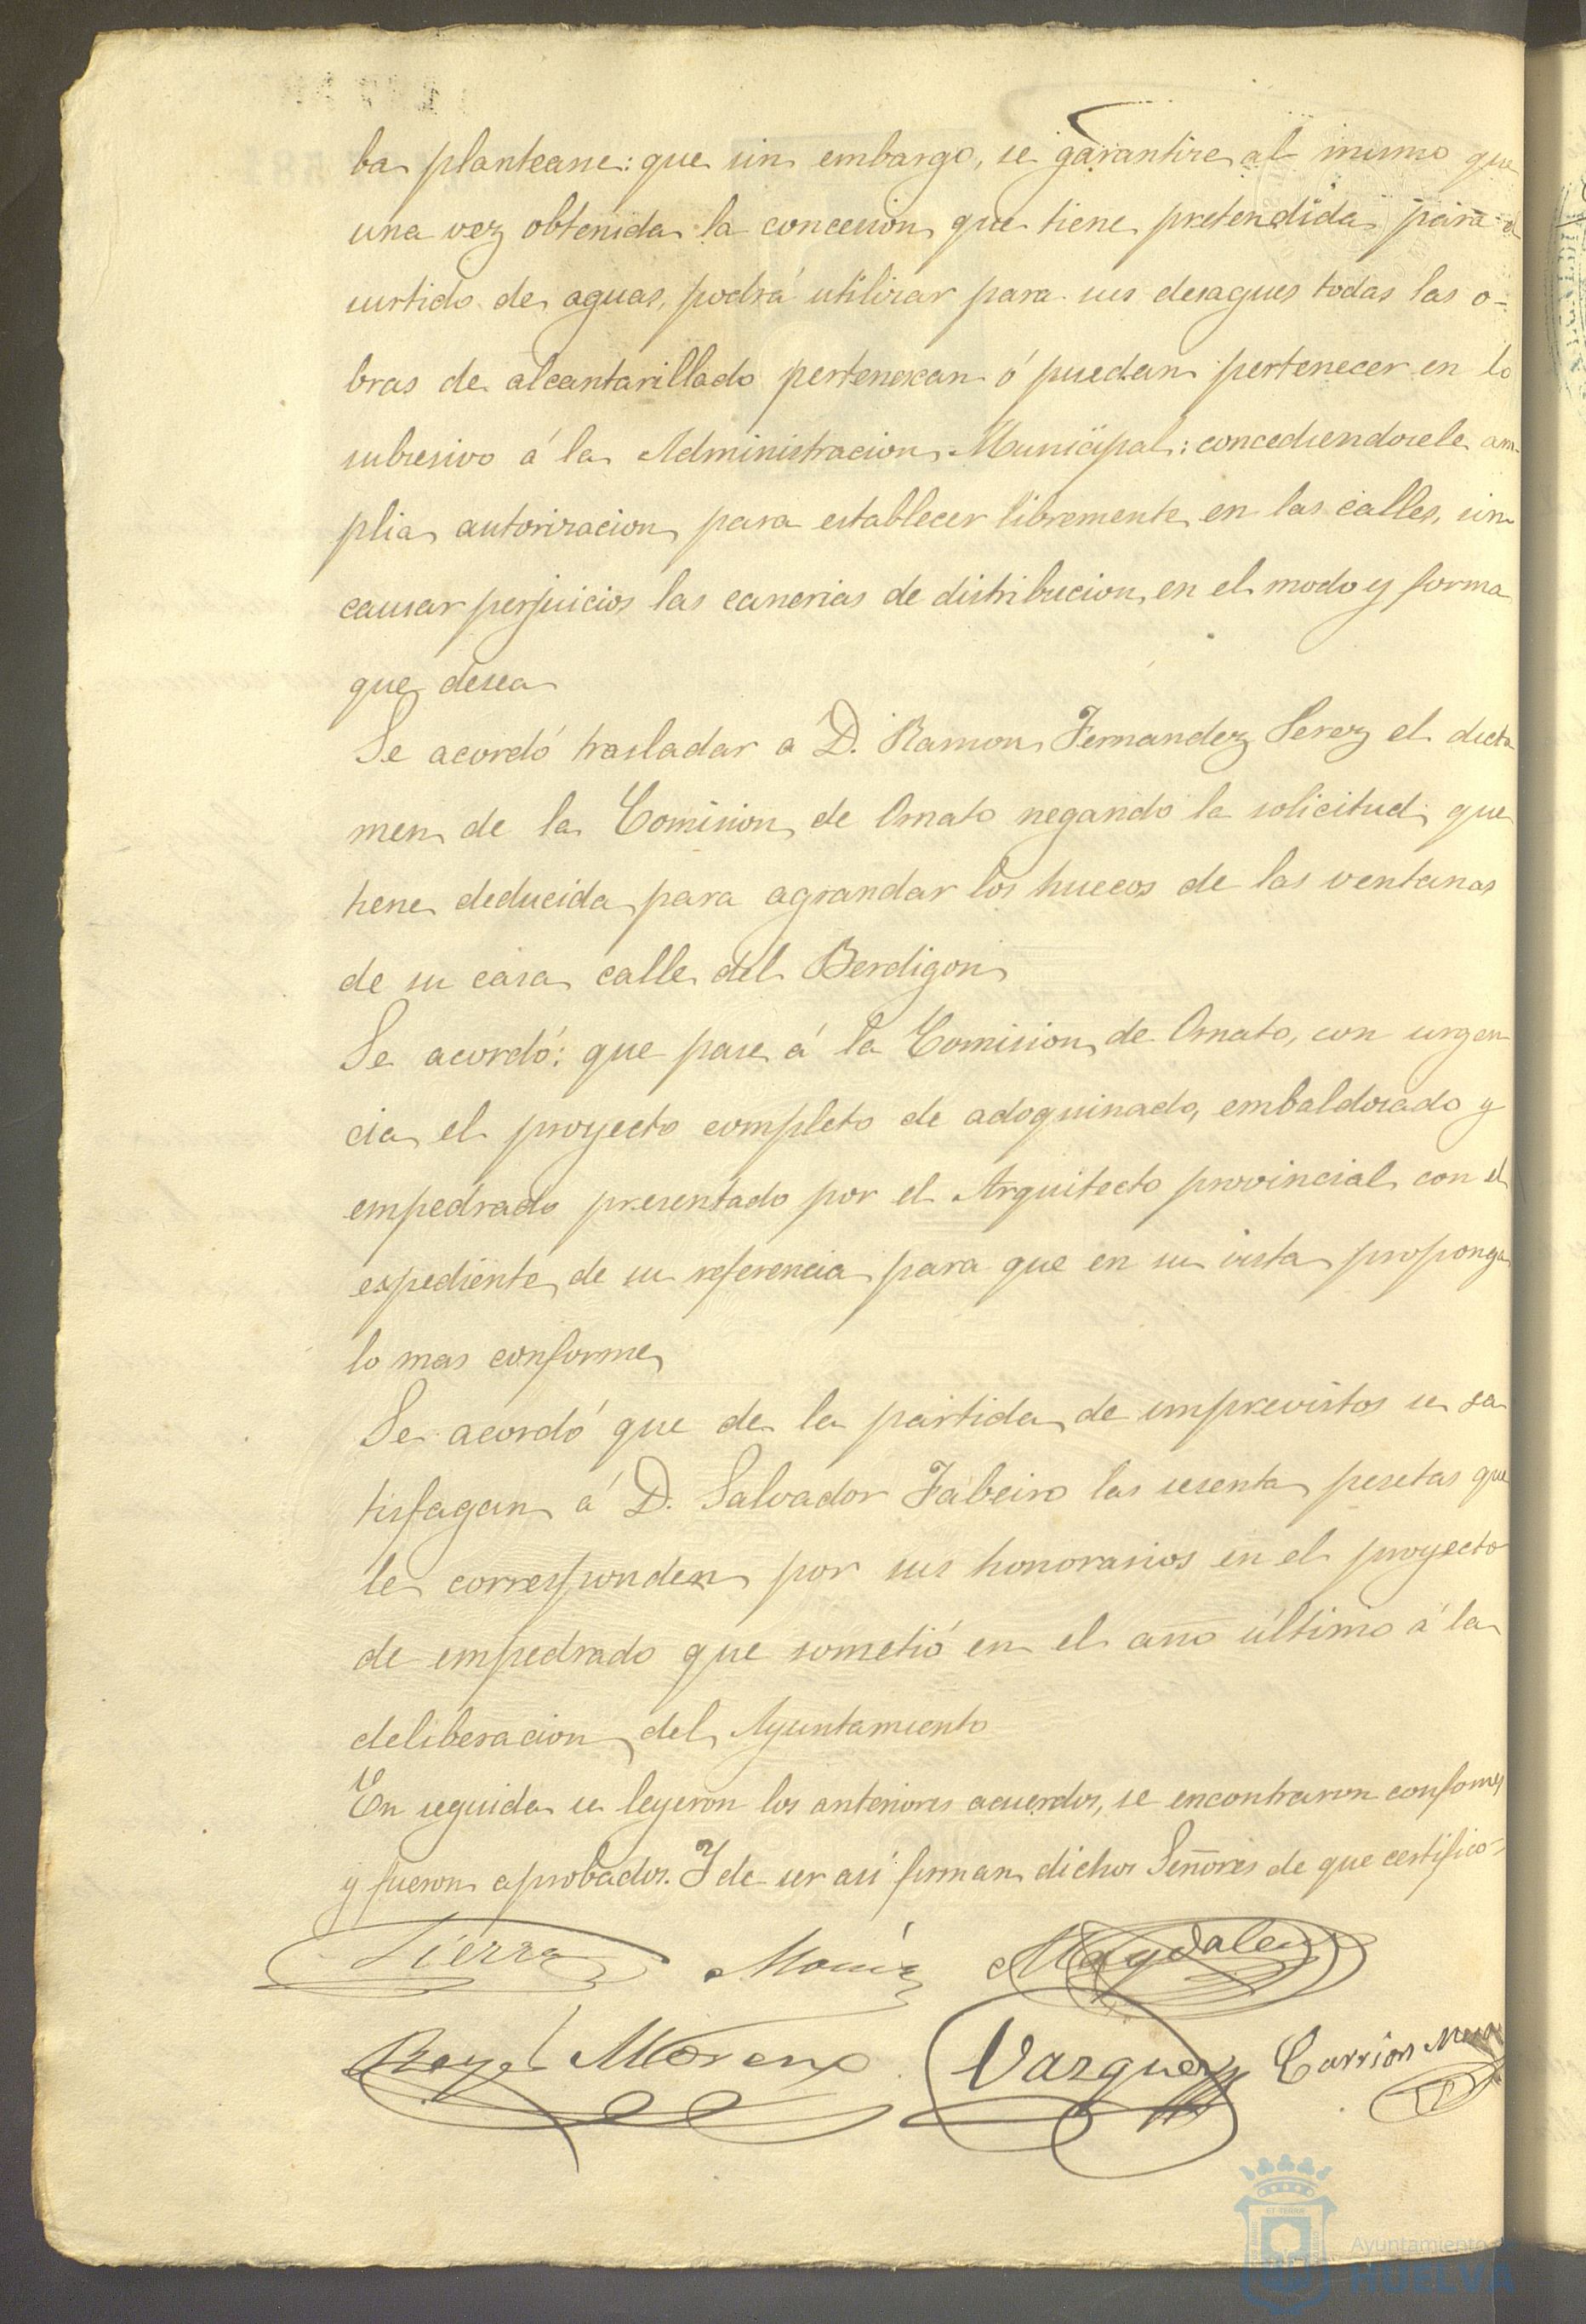 ba plantearse: que sin embargo, se garantize al mismo que
una vez obtenida la concesion que tiene pretendida para el
surtido de aguas, podrá utilizar para sus desagues todas las o-
bras de alcantarillado pertenezcan ó puedan pertenecer en lo
subcesivo á la Administracion Municipal: concediendosele am-
plia autorizacion para establecer libremente en las calles, sin
causar perjuicios las cañerias de distribucion, en el modo y forma
que desea
Se acordó trasladar a D. Ramon Fernandez Perez el dicta
men de la Comision de Ornato negando la solicitud que
tiene deducida para agrandar los huecos de las ventanas
de su casa calle del Berdigon
Se acordó: que pase á la Comision de Ornato, con urgen
cia el proyecto completo de adoquinado, embaldosado y
empedrado presentado por el Arquitecto provincial con el
expediente de su referencia para que en su vista proponga
lo mas conforme
Se acordó que de la partida de imprevistos se sa
tisfagan á D. Salvador Fabeiro las sesenta pesetas que
le corresponden por sus honorarios en el proyecto
de empedrado que sometió en el año último á la
deliberacion del Ayuntamiento
En seguida se leyeron los anteriores acuerdos, se encontraron conformes
y fueron aprobados. Y de ser asi firman dichos Señores de que certifico-
Tierra Magdalena
Moreno Vazquez Carrion
Ayuntamiento de
HUELVA